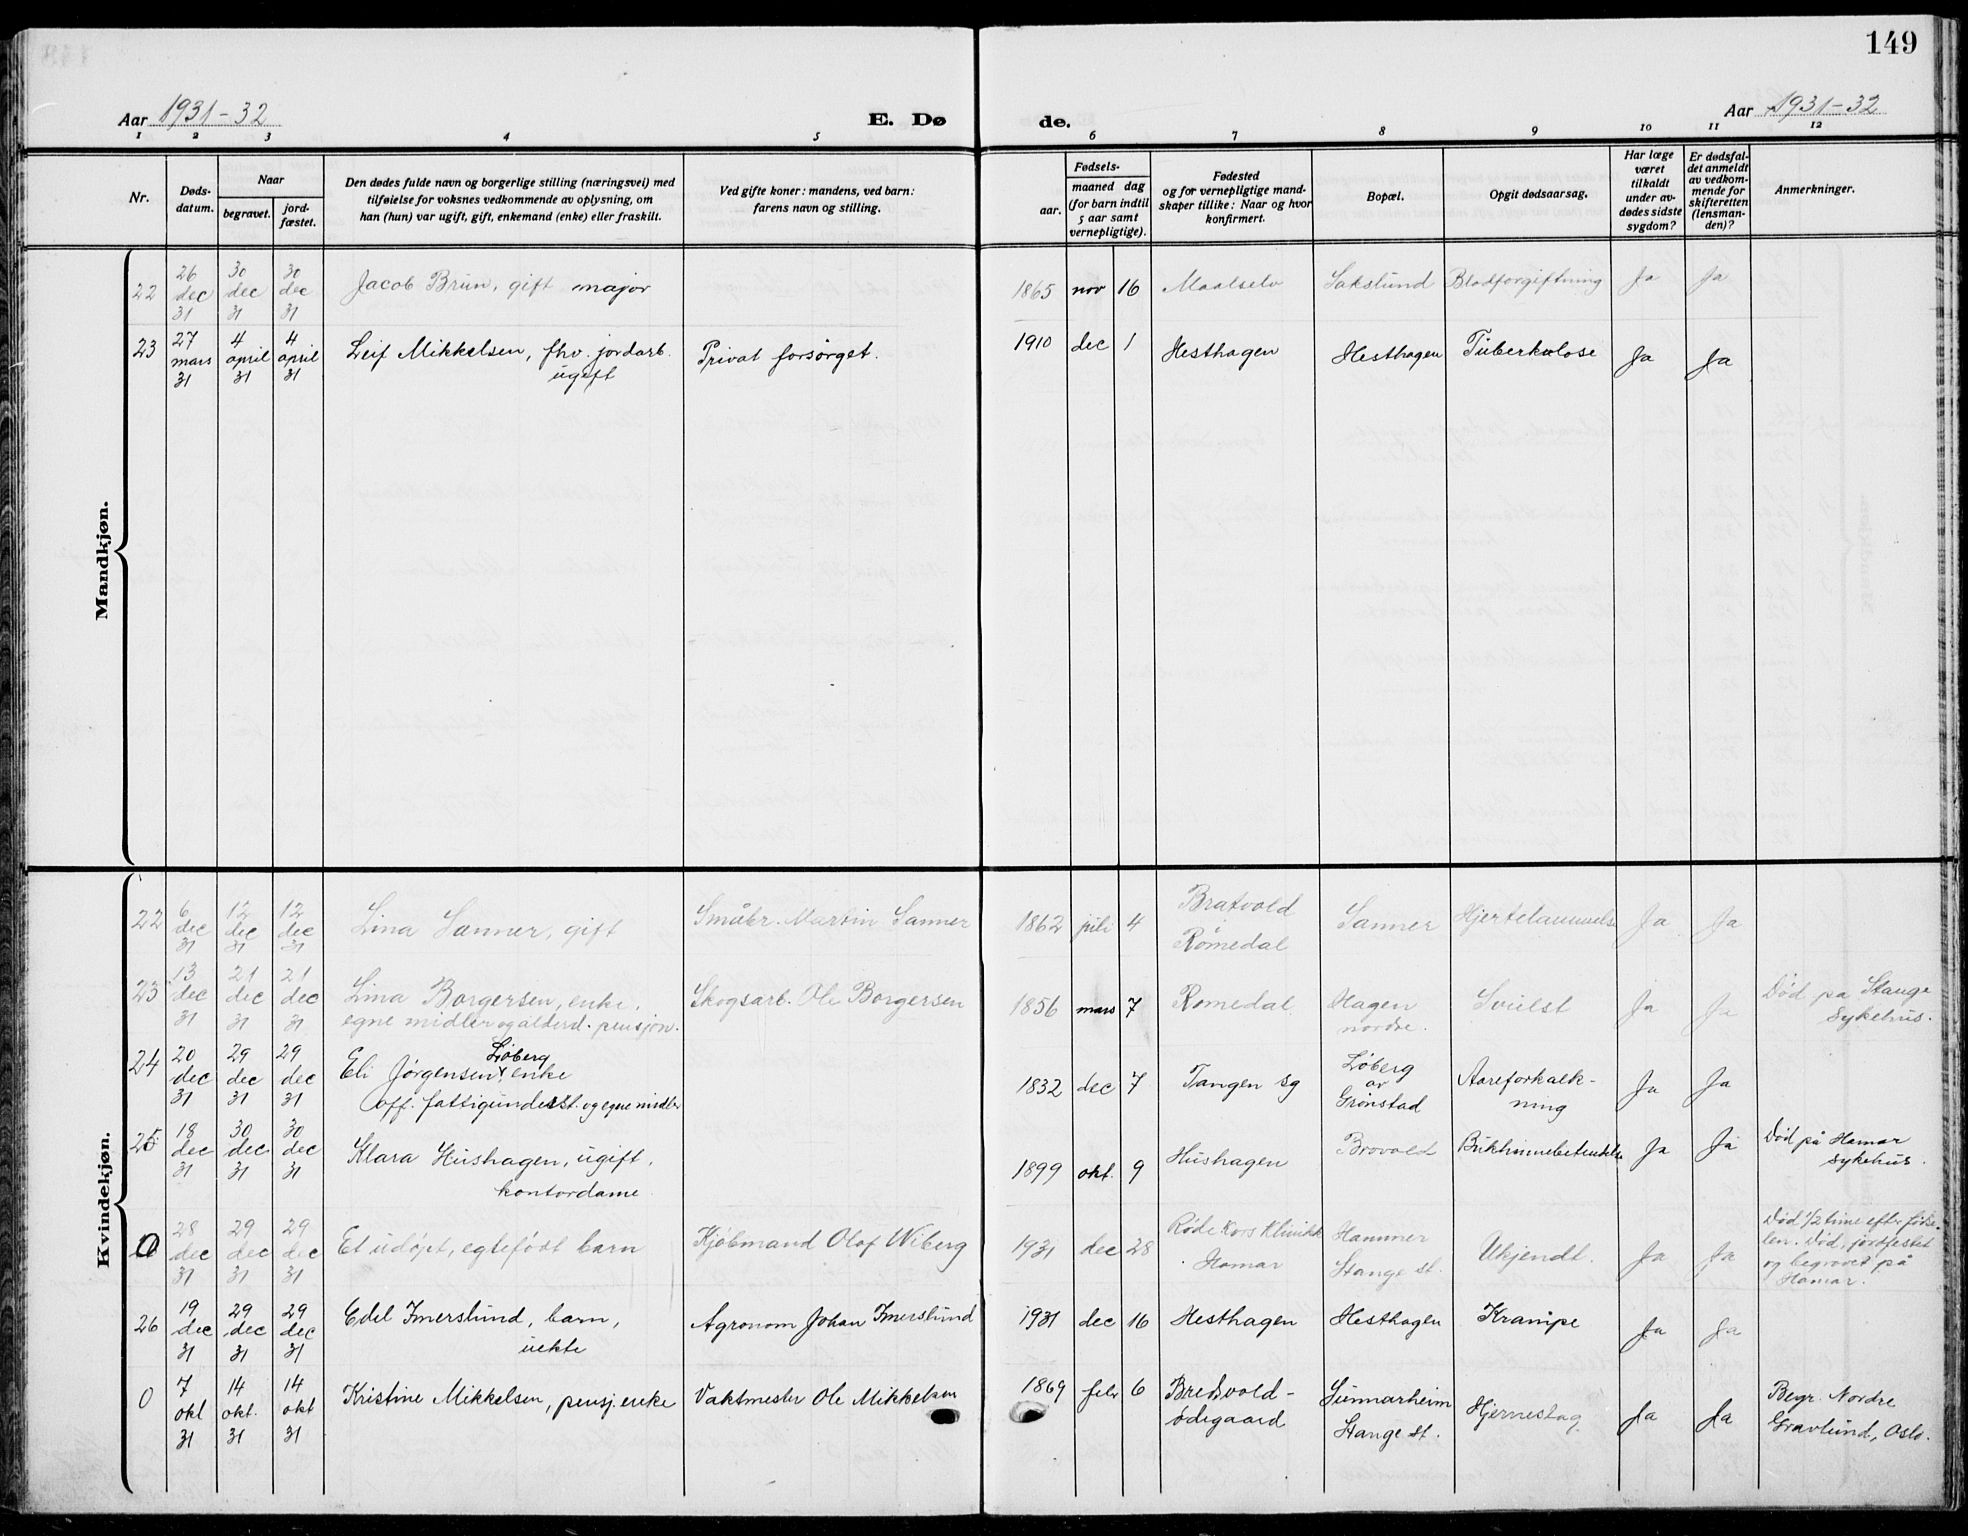 149
Aar 1931-32 E. Dø de. Aar 1931-32
1 2 3 4 5 6 7 8 9 10 11 12
Nr.
Døds-
datum.
Naar
begravet.
jord-
fæstet.
Den dødes fulde navn og borgerlige stilling (næringsvei) med
tilføielse for voksnes vedkommende av oplysning, om
han (hun) var ugift, gift, enkemand (enke) eller fraskilt.
Ved gifte koner: mandens, ved barn:
farens navn og stilling.
Fødsels-
aar.
maaned dag
(for barn indtil
5 aar samt
vernepligtige).
Fødested
og for vernepligtige mand-
skaper tillike: Naar og hvor
konfirmert.
Bopæl.
Opgit dødsaarsag.
Har læge
været
tilkaldt
under av-
dødes sidste
sygdom?
Er dødsfal-
det anmeldt
av vedkom-
mende for
skifteretten
(lensman-
den)?
Anmerkninger.
Mandkjøn.
22
26 dec 31
30 dec 31
30 dec 31
Jacob Brun, gift major
1865 nov 16
Maalselv
Sakslund
Blodforgiftning
Ja
Ja
23
27 mars 31
4 april 31
4 april 31
Leif Mikkelsen, fhv. jordarb.
ugift
Privat forsørget.
1910 dec 1
Hesthagen
Hesthagen
Tuberkulose
Ja
Ja
Kvindekjøn.
22
6 dec 31
12 dec 31
12 dec 31
Lina Sanner, gift
Småbr. Martin Sanner
1862 juli 4
Bratvold
Romedal
Sanner
Hjertelammelse
Ja
Ja
23
13 dec 31
21 dec 31
21 dec 31
Lina Borgersen, enke.
egne midler og alderd. pensjon.
Skogsarb. Ole Borgersen
1856 mars 7
Romedal
Hagen
nordre.
Svulst
Ja
Ja
Død på Stange
Sykehus.
24
20 dec 31
29 dec 31
29 dec 31
Løberg
Eli Jørgensen, enke
off. fattigunderst. og egne midler
1832 dec 7
Tangen sg
Løberg
av
Grønstad
Aareforkalk-
ning
Ja
Ja
25
18 dec 31
30 dec 31
30 dec 31
Klara Hushagen, ugift,
kontordame
1899 okt. 9
Hushagen
Brovold
Bukhinnebetendelse
Ja
Ja
Død på Hamar
sykehus.
0
28 dec 31
29 dec 31
29 dec 31
Et udøpt, egtefødt barn
Kjøbmand Olaf Wiberg
1931 dec 28
Røde Kors Klinikk
Hamar
Hammer
Stange st.
Ukjendt.
Ja
Ja
Død 1/2 time efter fødse-
len. Død, jordfestet
og begravet på
Hamar.
26
19 dec 31
29 dec 31
29 dec 31
Edel Imerslund, barn,
uekte
Agronom Johan Imerslund
1931 dec 16
Hesthagen
Hesthagen
Krampe
Ja
Ja
0
7 okt 31
14 okt. 31
14 okt 31
Kristine Mikkelsen, pensj. enke
Vaktmester Ole Mikkelsen
1869 febr 6
Bredvold-
ødegaard
Sunnarheim
Stange st.
Hjerneslag
Ja
Ja
Begr. Nordre
Gravlund, Oslo.